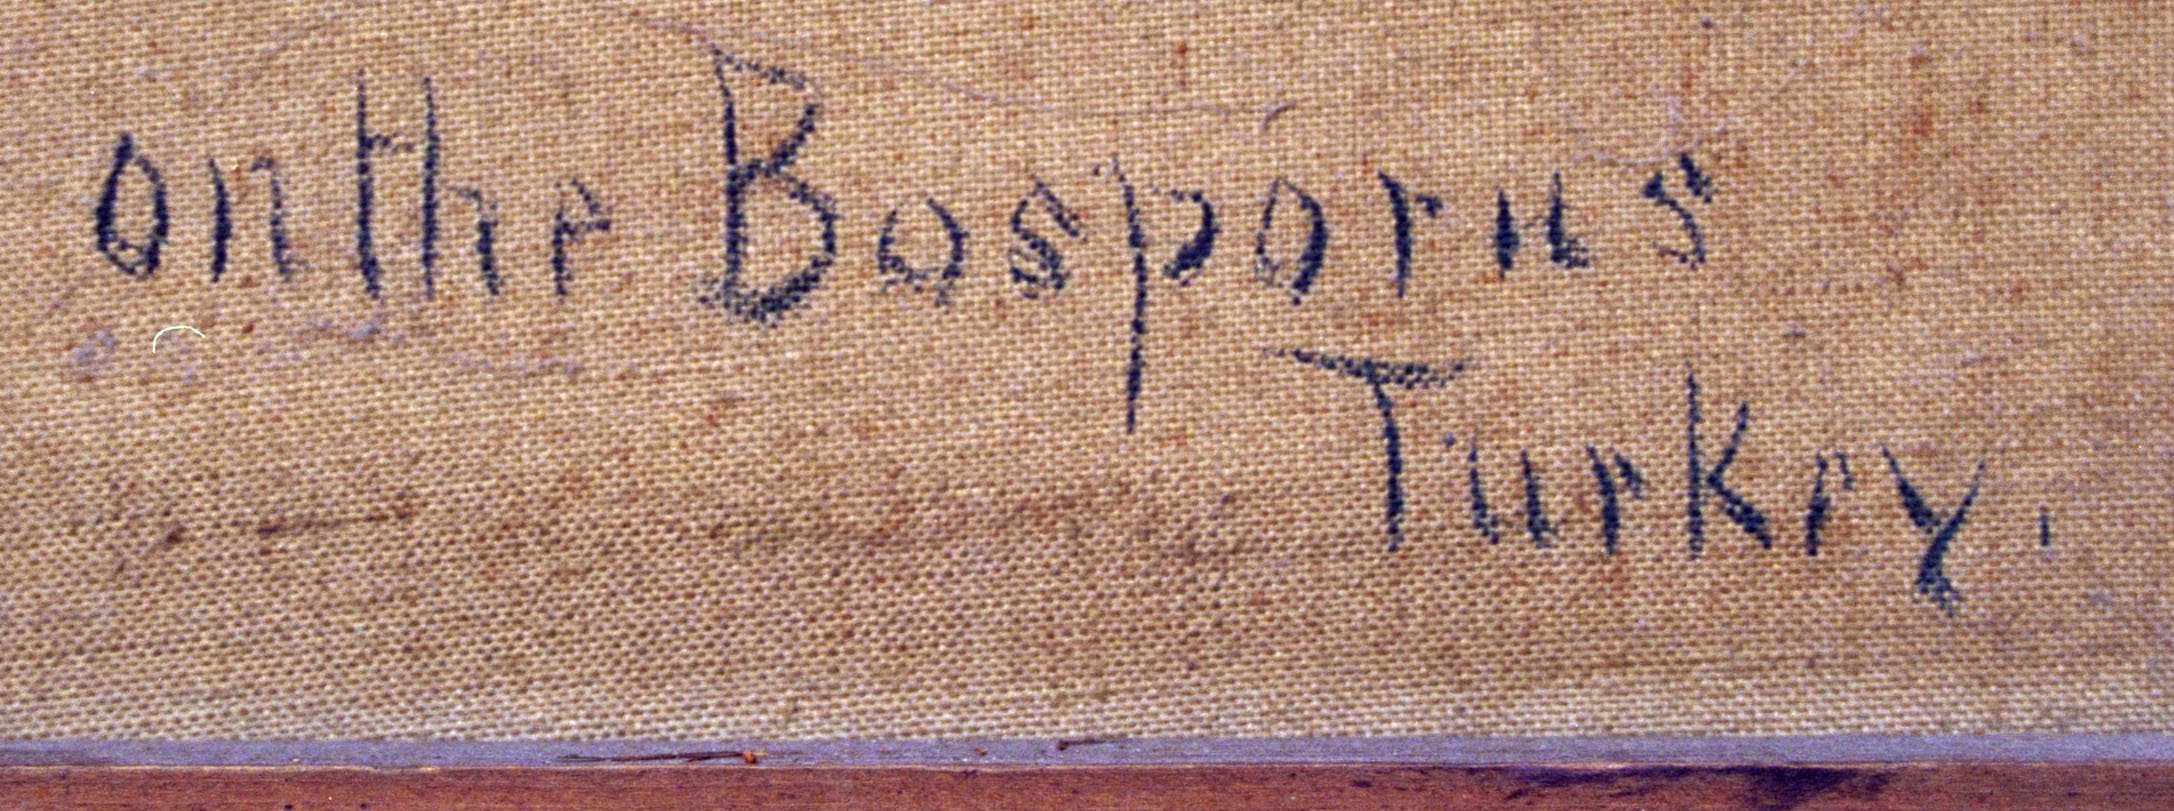 on the Bosporus
Turkey.